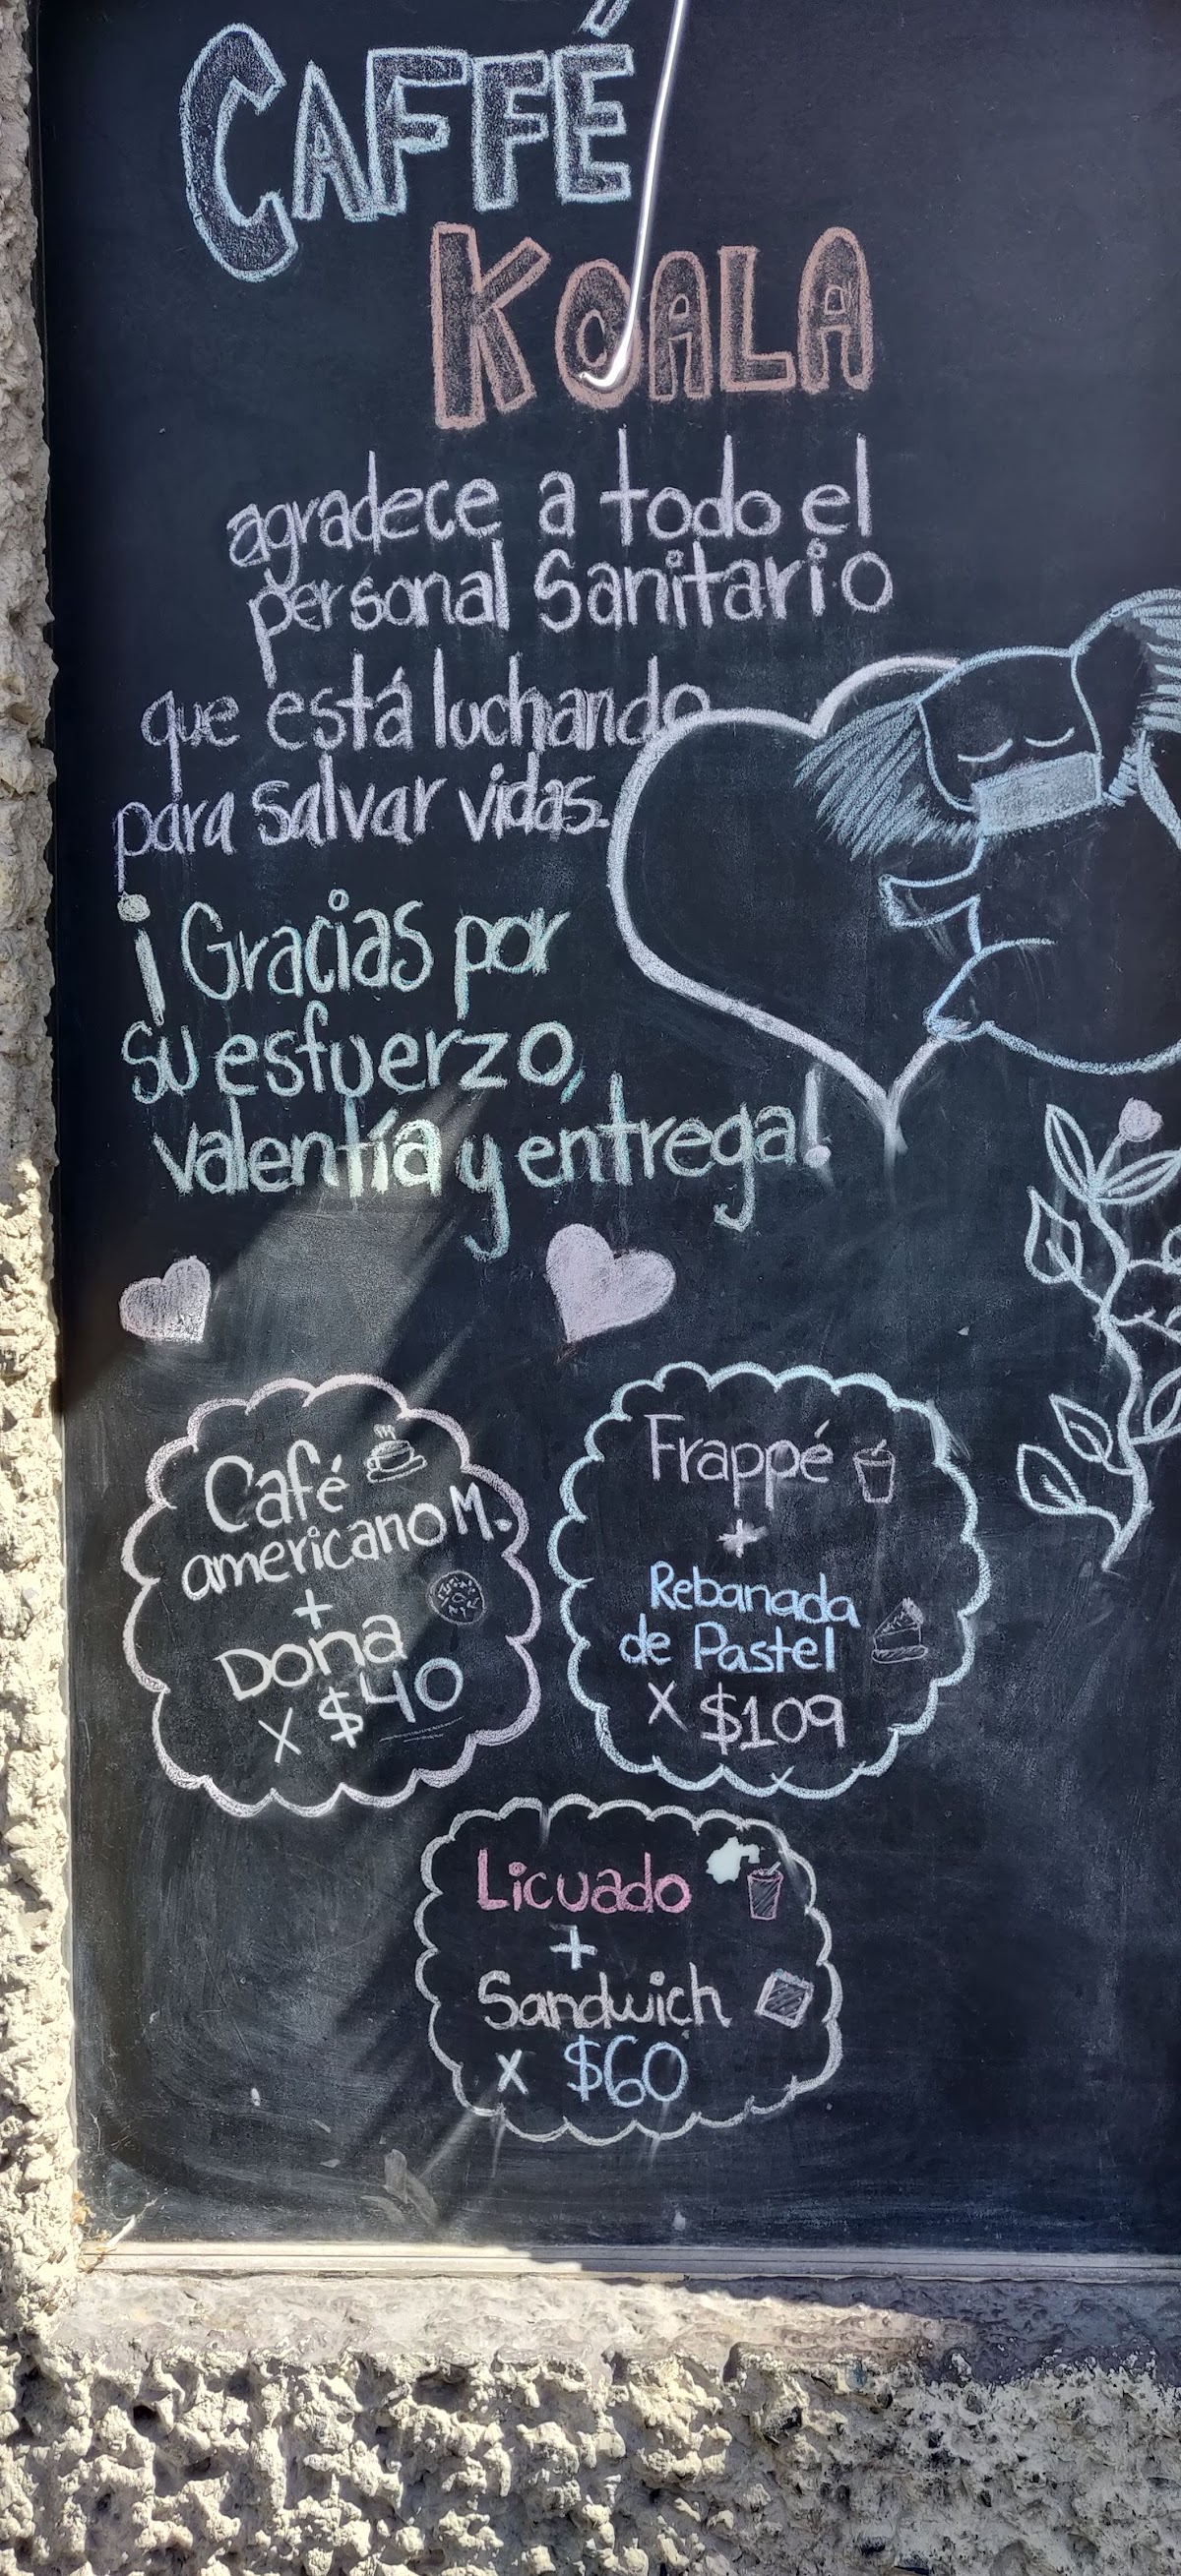 CAFFÉ
KOALA
agradece a todo el
personal Sanitario
que está luchando
para salvar vidas.
¡Gracias por
su esfuerzo,
valentía y entrega!
Café
americano M.
+
Dona
X $40
Frappé
+
Rebanada
de Pastel
X $109
Licuado
+
Sandwich
X $60